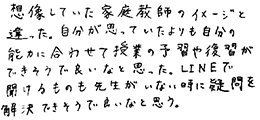 想像していた家庭教師のイメージと
違った。自分が思っていたよりも自分の
能力に合わせて授業の予習や復習が
できそうで良いなと思った。LINEで
聞けるものも先生がいない時に疑問を
解決できそうで良いなと思う。